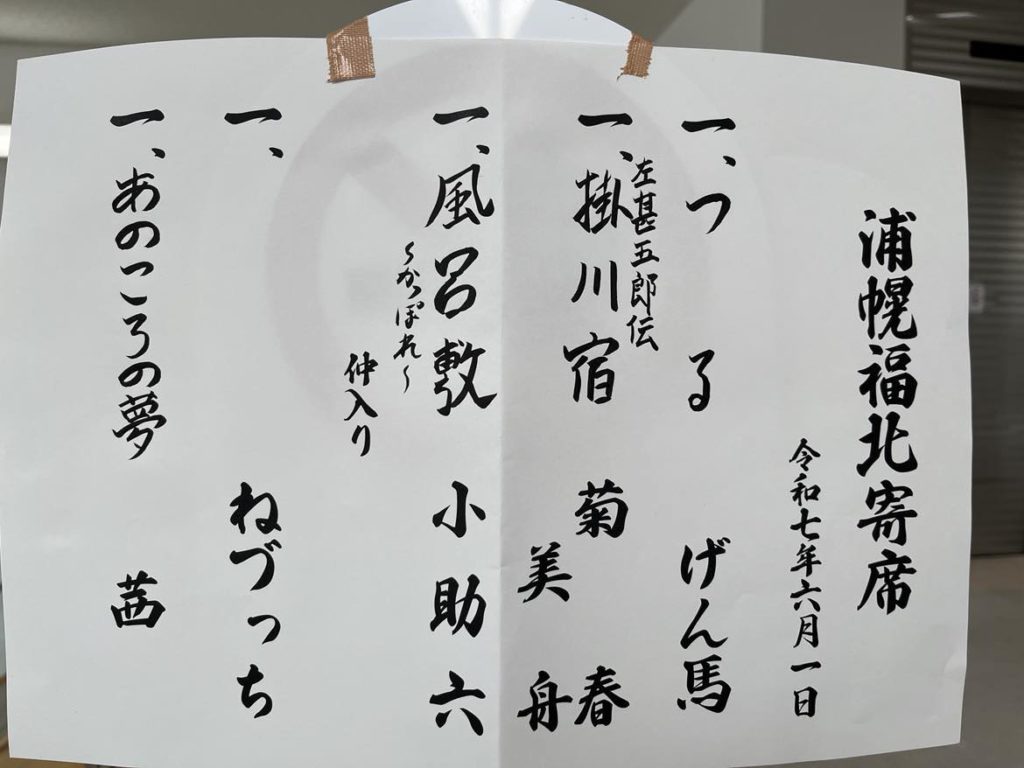 浦幌福北寄席
令和七年六月一日
一、つる げん馬
左甚五郎伝
一、掛川宿 菊春
美舟
一、風呂敷 小助六
〜かっぽれ〜
仲入り
一、 ねづっち
一、あのころの夢 茜